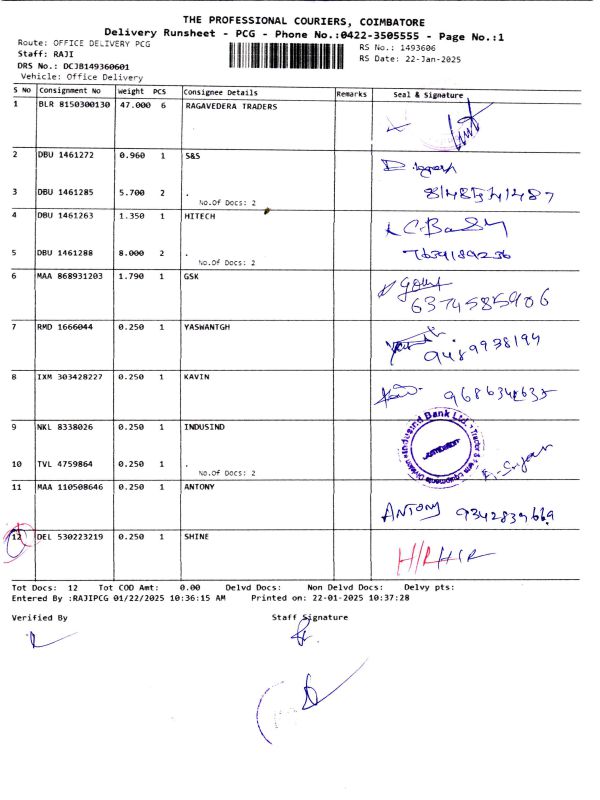 THE PROFESSIONAL COURIERS, COIMBATORE
Delivery Runsheet - PCG - Phone No.:0422-3505555 - Page No.:1
Route: OFFICE DELIVERY PCG
RS No.: 1493606
Staff: RAJI
RS Date: 22-Jan-2025
DRS No.: DCJB149360601
Vehicle: Office Delivery
S No Consignment No Weight PCS Consignee Details Remarks Seal & Signature
1 BLR 8150300130 47.000 6 RAGAVEDERA TRADERS
2 DBU 1461272 0.960 1 S&S
3 DBU 1461285 5.700 2 .
No.Of Docs: 2
4 DBU 1461263 1.350 1 HITECH
5 DBU 1461288 8.000 2 . 7639189236
No.Of Docs: 2
6 MAA 868931203 1.790 1 GSK
6374585906
7 RMD 1666044 0.250 1 YASWANTGH
9489938194
8 IXM 303428227 0.250 1 KAVIN
9 NKL 8338026 0.250 1 INDUSIND
IndusInd Bank Ltd.
10 TVL 4759864 0.250 1 .
No.Of Docs: 2
11 MAA 110508646 0.250 1 ANTONY
ANTONY 9342839669
12 DEL 530223219 0.250 1 SHINE
H/R H/R
Tot Docs: 12 Tot COD Amt: 0.00 Delvd Docs: Non Delvd Docs: Delvy pts:
Entered By :RAJIPCG 01/22/2025 10:36:15 AM Printed on: 22-01-2025 10:37:28
Verified By Staff Signature